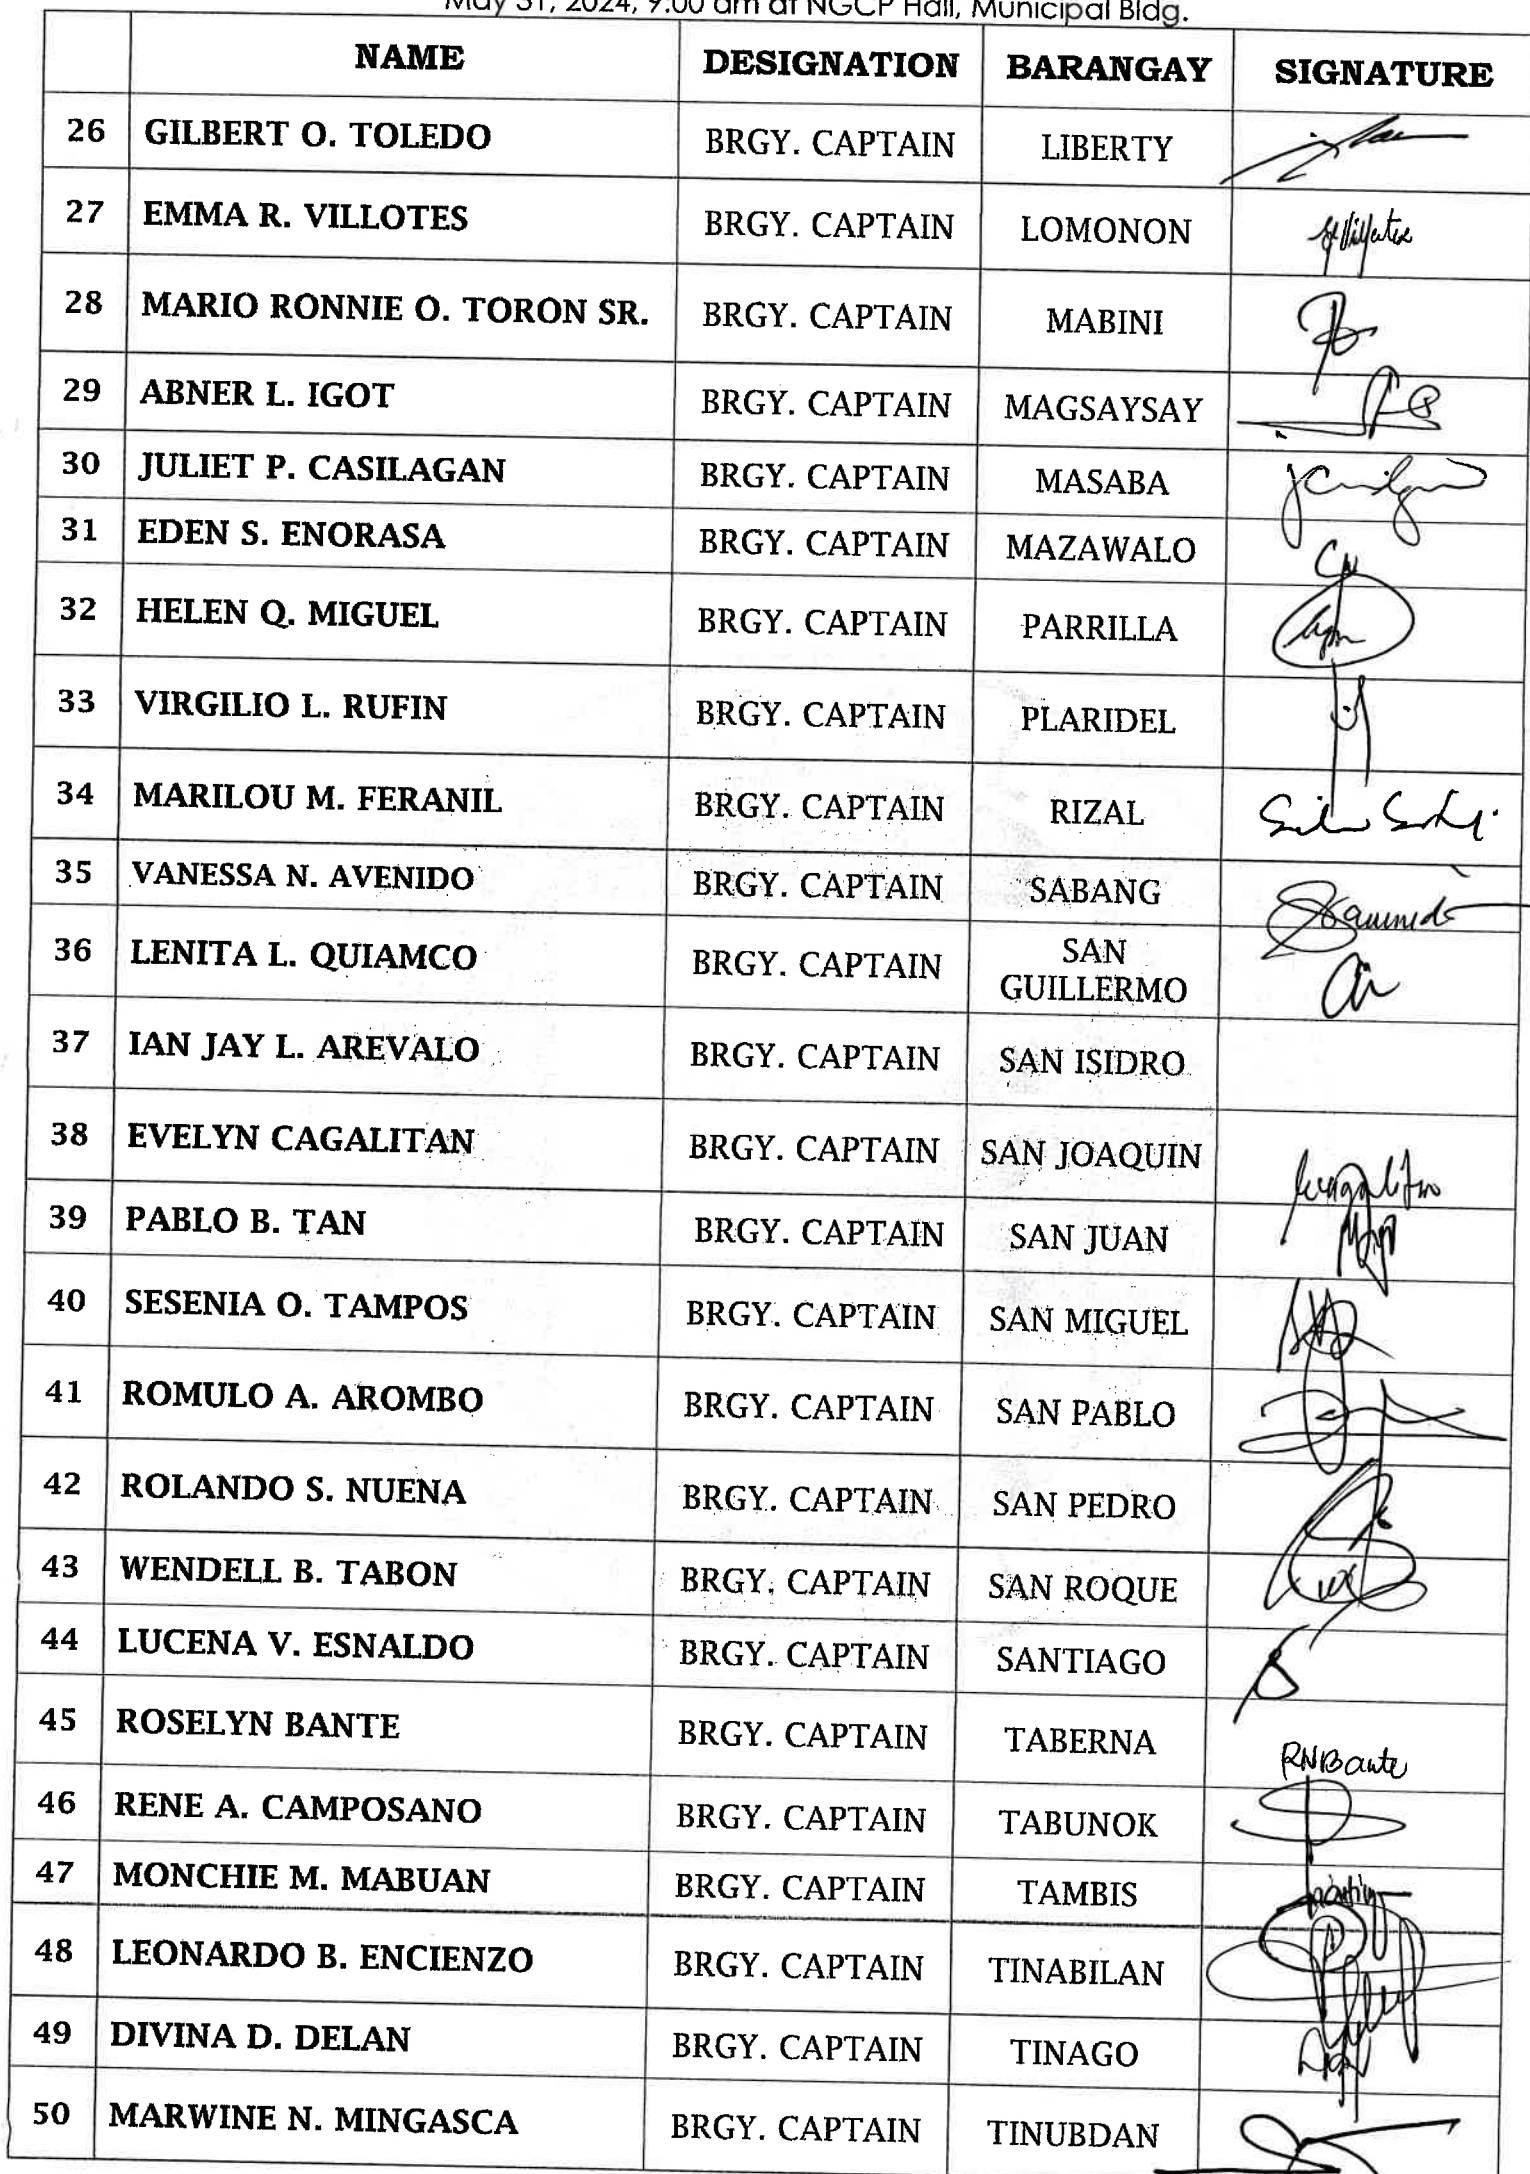 May 31, 2024, 9:00 am at NGCP Hall, Municipal Bldg.
NAME DESIGNATION BARANGAY SIGNATURE
26 GILBERT O. TOLEDO BRGY. CAPTAIN LIBERTY
27 EMMA R. VILLOTES BRGY. CAPTAIN LOMONON
28 MARIO RONNIE O. TORON SR. BRGY. CAPTAIN MABINI
29 ABNER L. IGOT BRGY. CAPTAIN MAGSAYSAY
30 JULIET P. CASILAGAN BRGY. CAPTAIN MASABA
31 EDEN S. ENORASA BRGY. CAPTAIN MAZAWALO
32 HELEN Q. MIGUEL BRGY. CAPTAIN PARRILLA
33 VIRGILIO L. RUFIN BRGY. CAPTAIN PLARIDEL
34 MARILOU M. FERANIL BRGY. CAPTAIN RIZAL
35 VANESSA N. AVENIDO BRGY. CAPTAIN SABANG
36 LENITA L. QUIAMCO BRGY. CAPTAIN SAN
GUILLERMO
37 IAN JAY L. AREVALO BRGY. CAPTAIN SAN ISIDRO
38 EVELYN CAGALITAN BRGY. CAPTAIN SAN JOAQUIN
39 PABLO B. TAN BRGY. CAPTAIN SAN JUAN
40 SESENIA O. TAMPOS BRGY. CAPTAIN SAN MIGUEL
41 ROMULO A. AROMBO BRGY. CAPTAIN SAN PABLO
42 ROLANDO S. NUENA BRGY. CAPTAIN SAN PEDRO
43 WENDELL B. TABON BRGY. CAPTAIN SAN ROQUE
44 LUCENA V. ESNALDO BRGY. CAPTAIN SANTIAGO
45 ROSELYN BANTE BRGY. CAPTAIN TABERNA RNBante
46 RENE A. CAMPOSANO BRGY. CAPTAIN TABUNOK
47 MONCHIE M. MABUAN BRGY. CAPTAIN TAMBIS
48 LEONARDO B. ENCIENZO BRGY. CAPTAIN TINABILAN
49 DIVINA D. DELAN BRGY. CAPTAIN TINAGO
50 MARWINE N. MINGASCA BRGY. CAPTAIN TINUBDAN